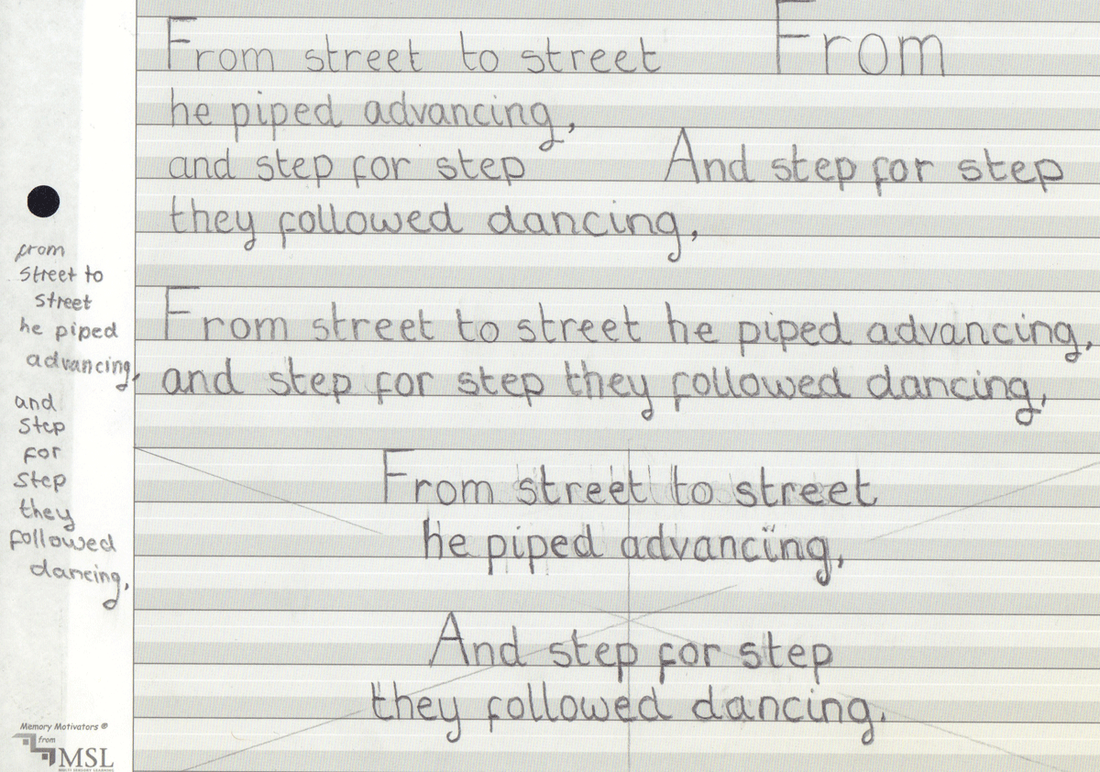 From street to street From
he piped advancing,
and step for step And step for step
they followed dancing,
From street to street he piped advancing,
and step for step they followed dancing,
From street to street
he piped advancing,
And step for step
they followed dancing.
from
street to
street
he piped
advancing,
and
step
for
step
they
followed
dancing,
Memory Motivators ®
from
MSL